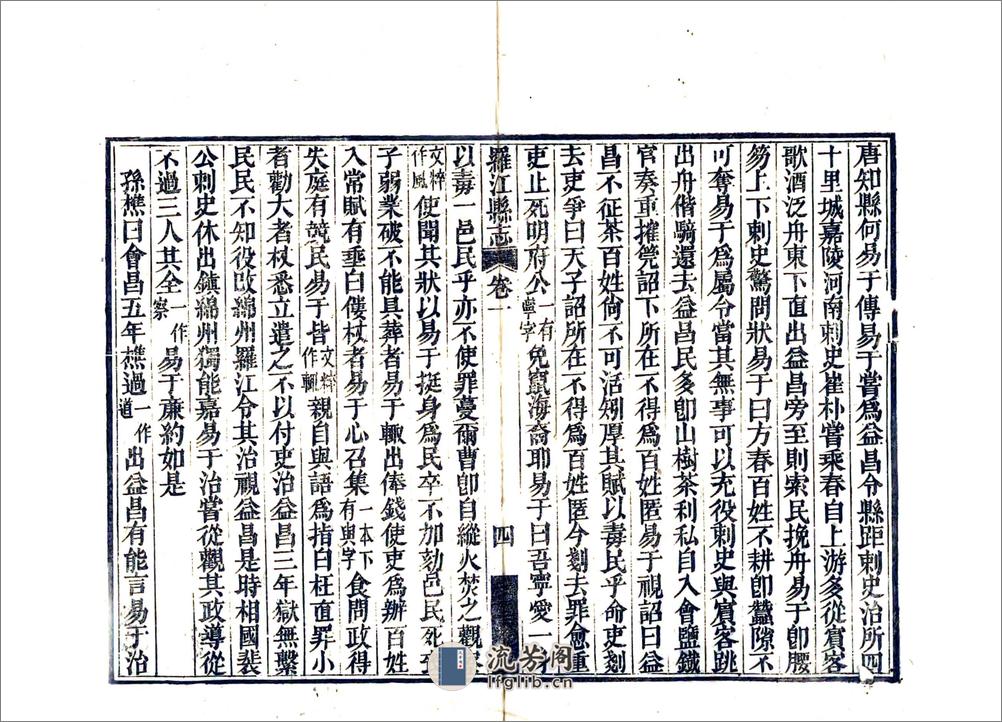 唐知縣何易于傳易于嘗爲益昌令縣距刺史治所四
十里城嘉陵河南刺史崔朴嘗乘春自上游多從賓客
歌酒泛舟東下直出益昌旁至則索民挽舟易于卽腰
笏上下刺史驚問狀易于曰方春百姓不耕卽蠶隙不
可奪易于爲屬令當其無事可以充役刺史與賓客跳
出舟偕騎還去益昌民多卽山樹茶利私自入會鹽鐵
官奏重搉筦詔下所在不得爲百姓匿易于視詔曰益
昌不征茶百姓尙不可活矧厚其賦以毒民乎命吏剗
去吏爭曰天子詔所在不得爲百姓匿今剗去罪愈重
吏止死明府公一有寧字免竄海裔耶易于曰吾寧愛一
羅江縣志 卷一 四
以毒一邑民乎亦不使罪蔓爾曹卽自縱火焚之觀
文粹作風使聞其狀以易于挺身爲民卒不加劾邑民死
子弱業破不能具葬者易于輒出俸錢使吏爲辦百姓
入常賦有垂白僂杖者易于心召集一本下有與字食問政得
失庭有競民易于皆文粹作輒親自與語爲指白枉直罪小
者勸大者杖悉立遣之不以付吏治益昌三年獄無繫
民民不知役改綿州羅江令其治視益昌是時相國裴
公刺史休出鎮綿州獨能嘉易于治嘗從觀其政導從
不過三人其全一作察易于亷約如是
孫樵曰會昌五年樵過一作道出益昌有能言易于治
流芳阁
lfglib.cn